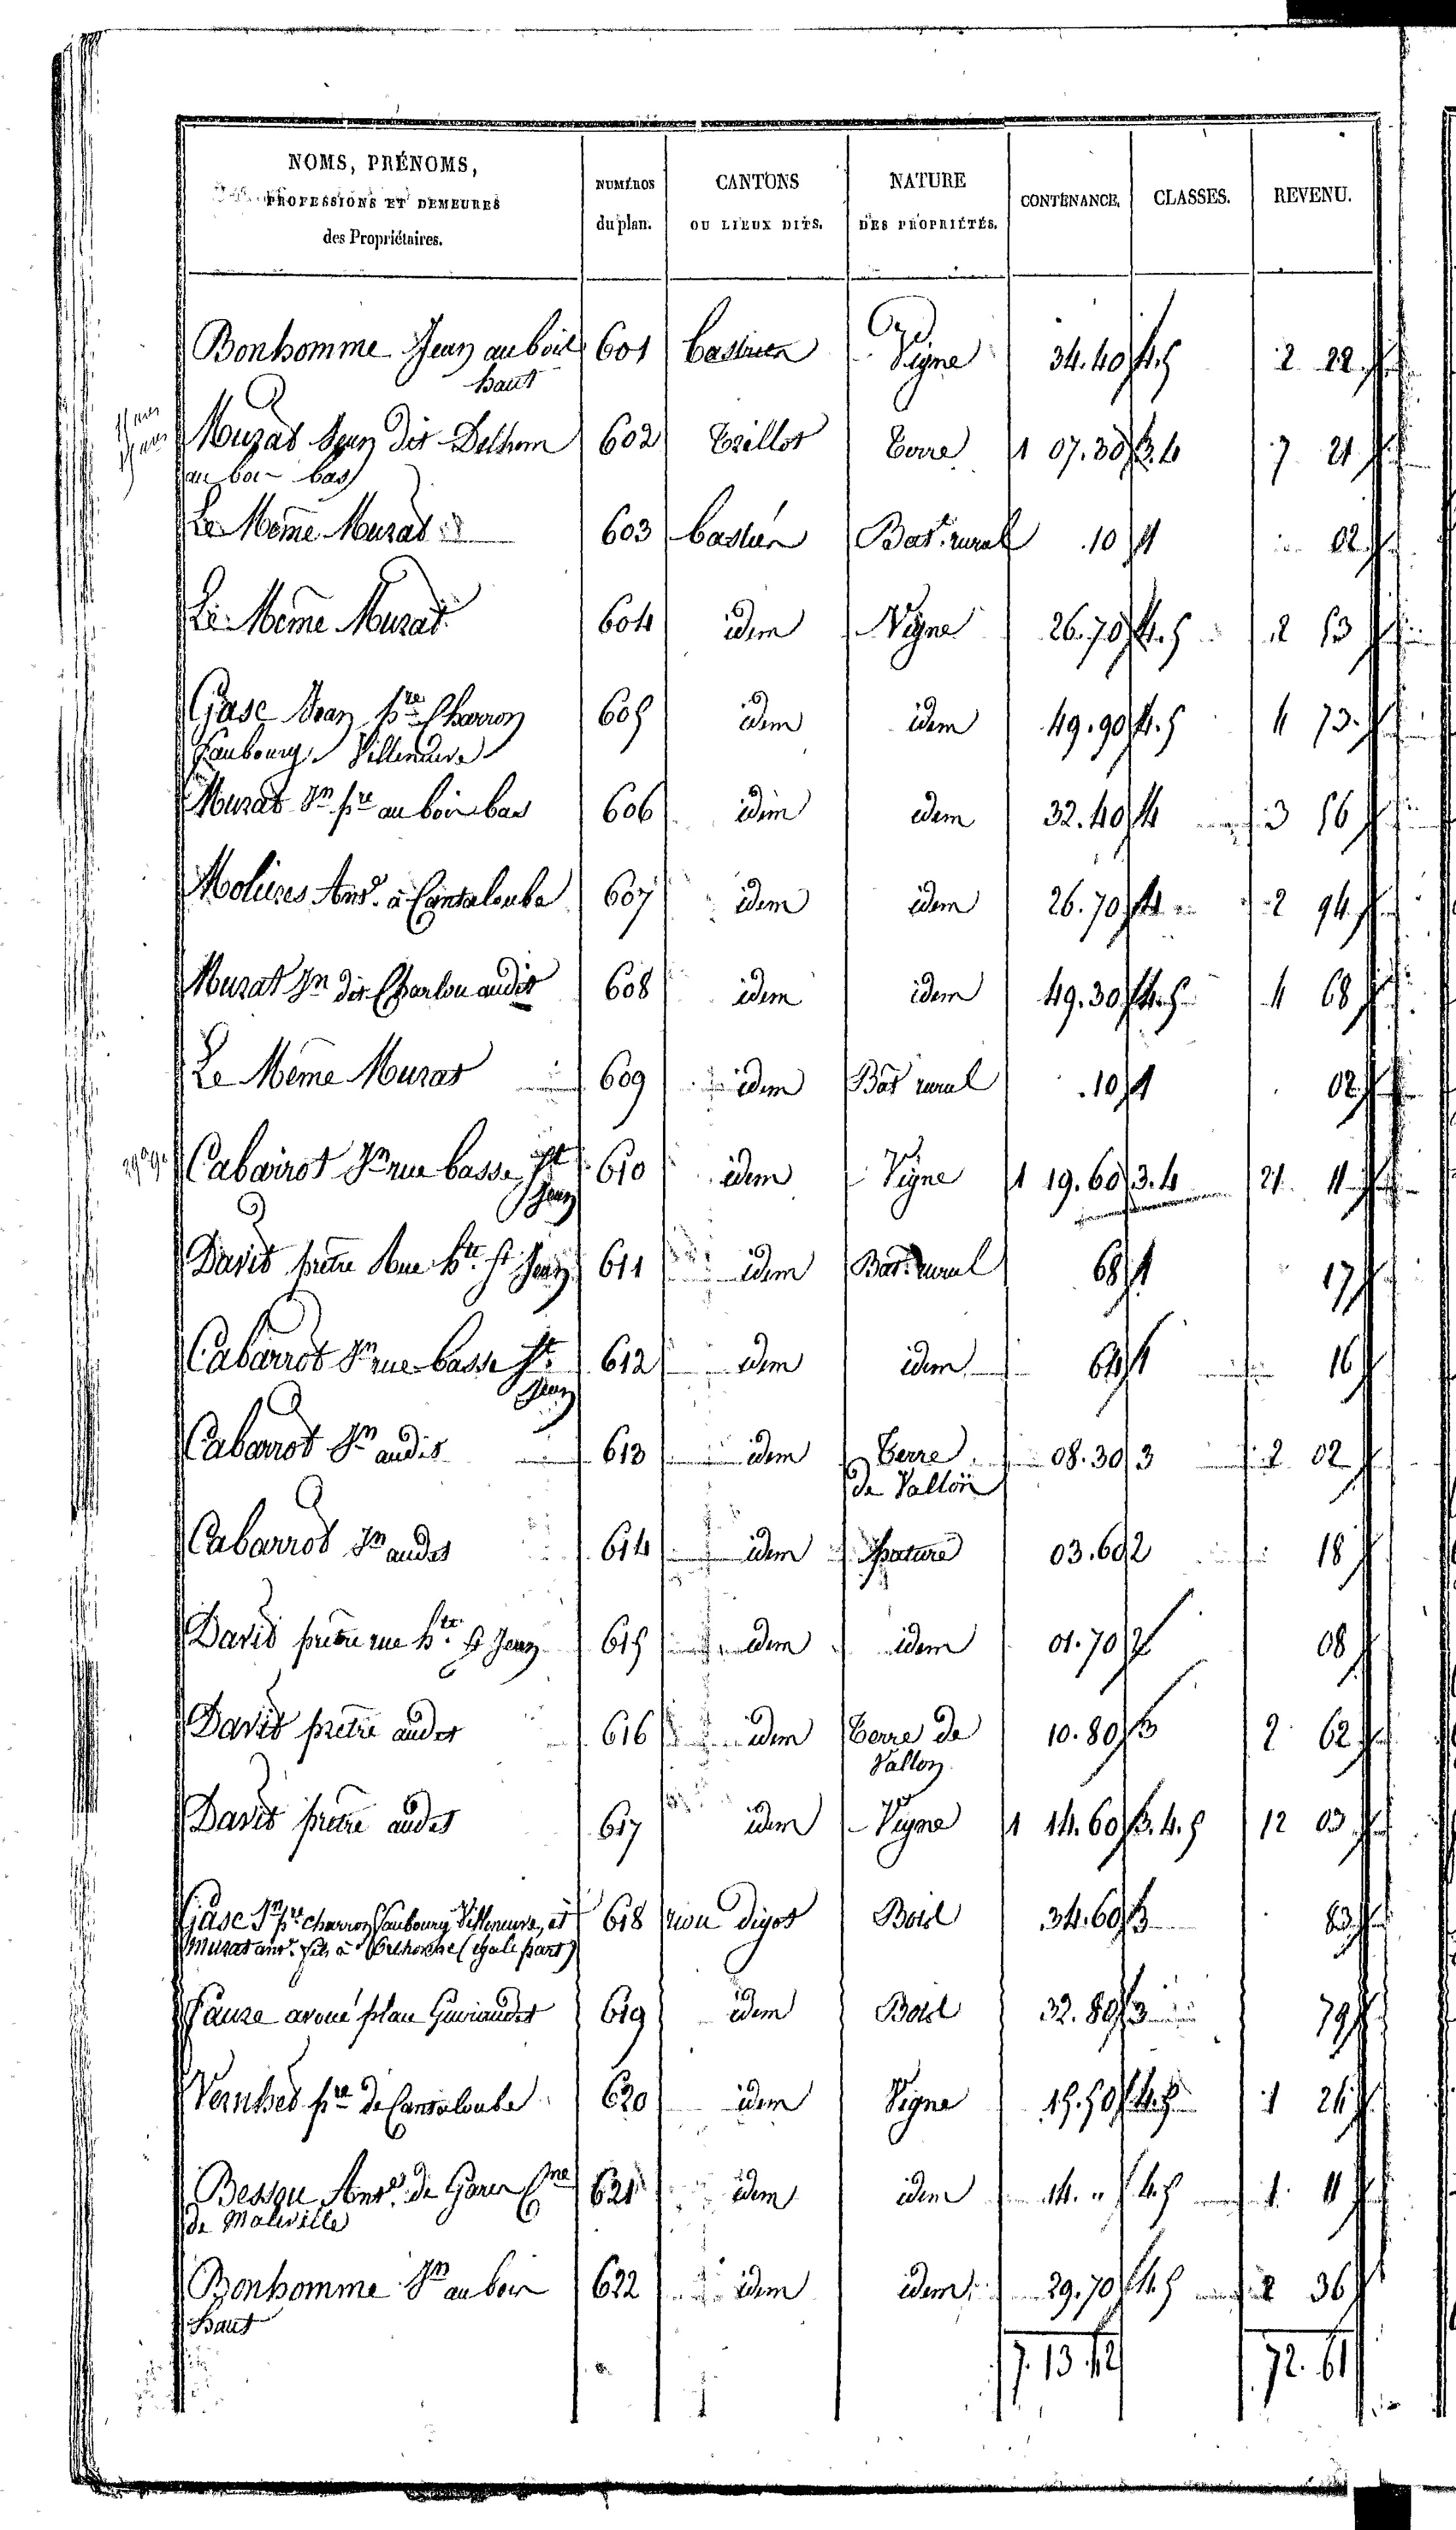 NOMS, PRÉNOMS, PROFESSIONS ET DEMEURES des Propriétaires. NUMÉROS du plan. CANTONS OU LIEUX DITS. NATURE DES PROPRIÉTÉS. CONTENANCE. CLASSES. REVENU.
Bonhomme Jean au bois 601 Vigne 34.40 4.5 2 22
haut
Murat Jean dit Delhom 602 Trillot Terre 1 07.30 3.4 7 21
au bois bas
Le Même Murat 603 bastien Bat. rural .10 1 02
Le Même Murat 604 idem Vigne 26.70 4.5 2 53
Gasc Jean pre Charron 605 idem idem 49.90 4.5 4 73
faubourg Villeneuve
Murat Jn pre au bois bas 606 idem idem 32.40 4 3 56
Molieres Ant. à Cantaloube 607 idem idem 26.70 4 2 94
Murat Jn dit Charlou audit 608 idem idem 49.30 4.5 4 68
Le Même Murat 609 idem Bat rural .10 1 02
Cabarrot Jn rue basse St 610 idem Vigne 1 19.60 3.4 21 11
Jean
David prêtre Rue hte St Jean 611 idem Bat. rural 68 1 17
Cabarrot Jn rue basse St 612 idem idem 64 1 16
Jean
Cabarrot Jn audit 613 idem Terre 08.30 3 2 02
de Vallon
Cabarrot Jn audit 614 idem pature 03.60 2 18
David prêtre rue hte St Jean 615 idem idem 01.70 2 08
David prêtre audit 616 idem Terre de 10.80 3 2 62
Vallon
David prêtre audit 617 idem Vigne 1 14.60 3.4.5 12 03
Gasc Jn pre charron faubourg Villeneuve, et 618 riou digot Bois 34.60 3 83
Murat ant. fils à (égale part)
Fauze avoué plau Guiraudet 619 idem Bois 32.80 3 79
Vernhet pre de Cantaloube 620 idem Vigne 15.50 4.5 1 24
Bessou Ant. de Garen Cne 621 idem idem 14. " 4.5 1 11
de Maleville
Bonhomme Jn au bois 622 idem idem 29.70 4.5 2 36
haut
7.13.42 72.61